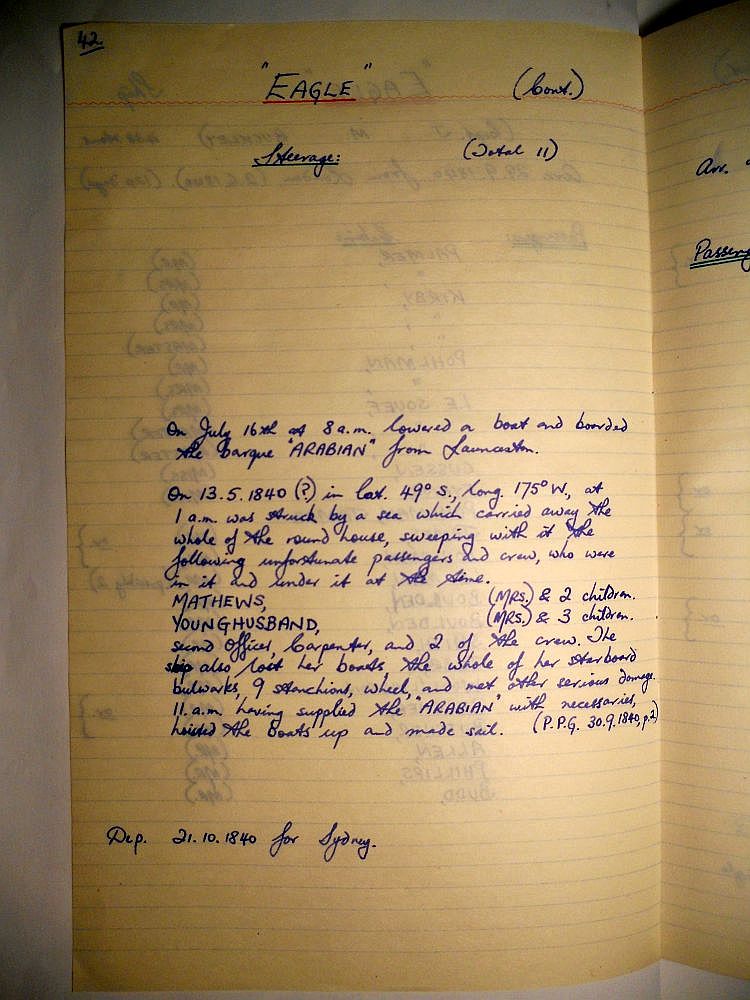 42.
"EAGLE" (Cont.)
Steerage: (Total 11)
On July 16th at 8 a.m. lowered a boat and boarded
the barque "ARABIAN" from Launceston.
On 13.5.1840 (?) in lat. 49° S., long. 175° W., at
1 a.m. was struck by a sea which carried away the
whole of the round house, sweeping with it the
following unfortunate passengers and crew, who were
in it and under it at the time.
MATHEWS, (MRS.) & 2 children.
YOUNGHUSBAND, (MRS.) & 3 children.
second Officer, Carpenter, and 2 of the crew. The
ship also lost her boats the whole of her starboard
bulwarks, 9 stanchions, wheel, and met other serious damage.
11. a.m. having supplied the "ARABIAN" with necessaries,
hoisted the boats up and made sail. (P.P.G. 30.9.1840, p.2)
Dep. 21.10.1840 for Sydney.
Arr.
Passeng